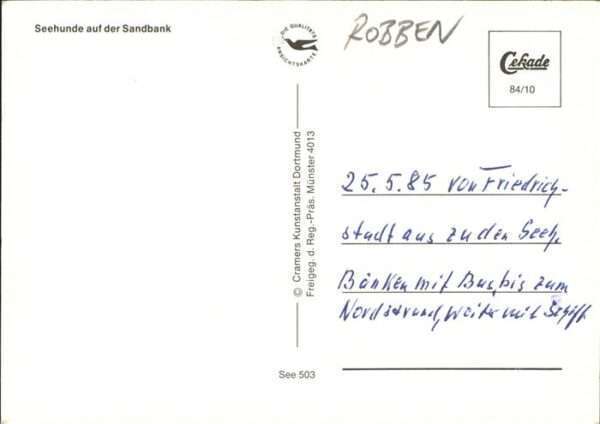 Seehunde auf der Sandbank
DIE QUALITÄTS
ANSICHTSKARTE
ROBBEN
Cekade
84/10
© Cramers Kunstanstalt Dortmund
Freigeg. d. Reg.-Präs. Münster 4013
25.5.85 von Friedrich-
stadt aus zu den Seeh.
Bänken mit Bus, bis zum
Nordstrand, weiter mit Schiff
See 503